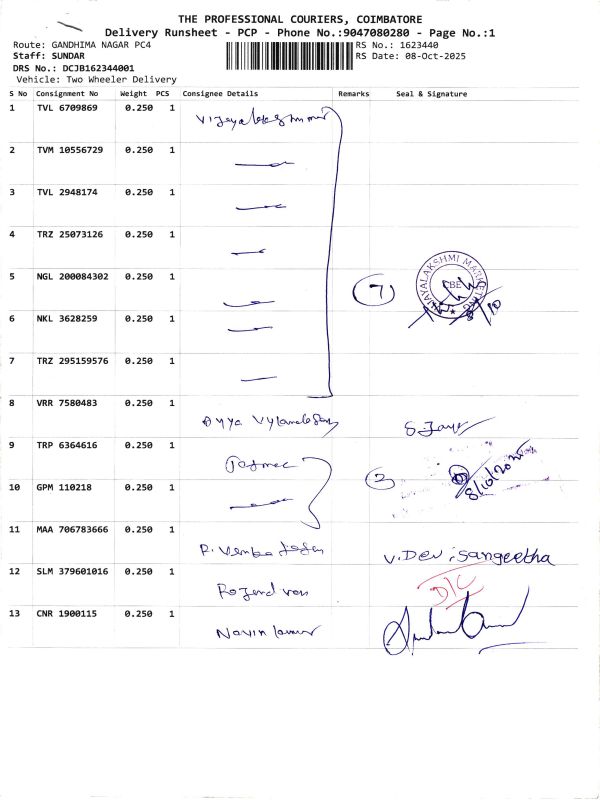 THE PROFESSIONAL COURIERS, COIMBATORE
Delivery Runsheet - PCP - Phone No.:9047080280 - Page No.:1
Route: GANDHIMA NAGAR PC4
RS No.: 1623440
Staff: SUNDAR
RS Date: 08-Oct-2025
DRS No.: DCJB162344001
Vehicle: Two Wheeler Delivery
S No Consignment No Weight PCS Consignee Details Remarks Seal & Signature
1 TVL 6709869 0.250 1
2 TVM 10556729 0.250 1
3 TVL 2948174 0.250 1
4 TRZ 25073126 0.250 1
5 NGL 200084302 0.250 1 7
VIJAYALAKSHMI MARKETING
CBE
8/10
6 NKL 3628259 0.250 1
7 TRZ 295159576 0.250 1
8 VRR 7580483 0.250 1 S. Jaya
9 TRP 6364616 0.250 1
8/10/2025
10 GPM 110218 0.250 1
11 MAA 706783666 0.250 1 V. Devi Sangeetha
12 SLM 379601016 0.250 1 D/C
13 CNR 1900115 0.250 1 Navin kumar